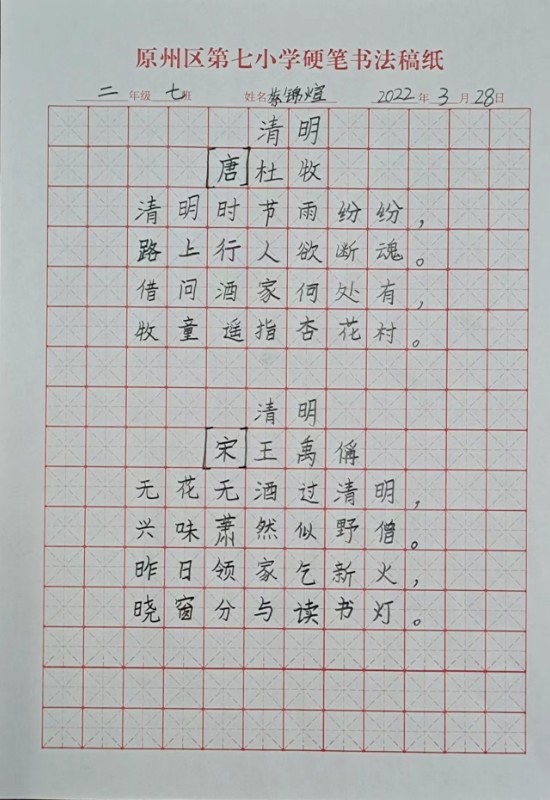 原州区第七小学硬笔书法稿纸
二年级 七班 姓名 苏锦煊 2022年3月28日
清明
[唐]杜牧
清明时节雨纷纷，
路上行人欲断魂。
借问酒家何处有，
牧童遥指杏花村。
清明
[宋]王禹偁
无花无酒过清明，
兴味萧然似野僧。
昨日领家乞新火，
晓窗分与读书灯。